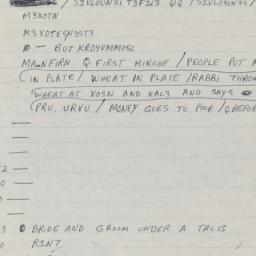 / SIVLOUN3S T3F1L3 QQ / SIVLO
M3XOTN
M3VOTESN3ST3
— BUT KRO4VMMOSL
FIRN Q FIRST MINKHE / PEOPLE PUT
(IN PLATE / WHEAT IN PLATE / RABBI THROW
WHEAT AT XOSN AND KAL3 AND SAYS
(PRU. URVU. / MONEY GOES TO POOR / QBEFOR
2 —
0 —
3 BRIDE AND GROOM UNDER A TALIS
0 RIN7